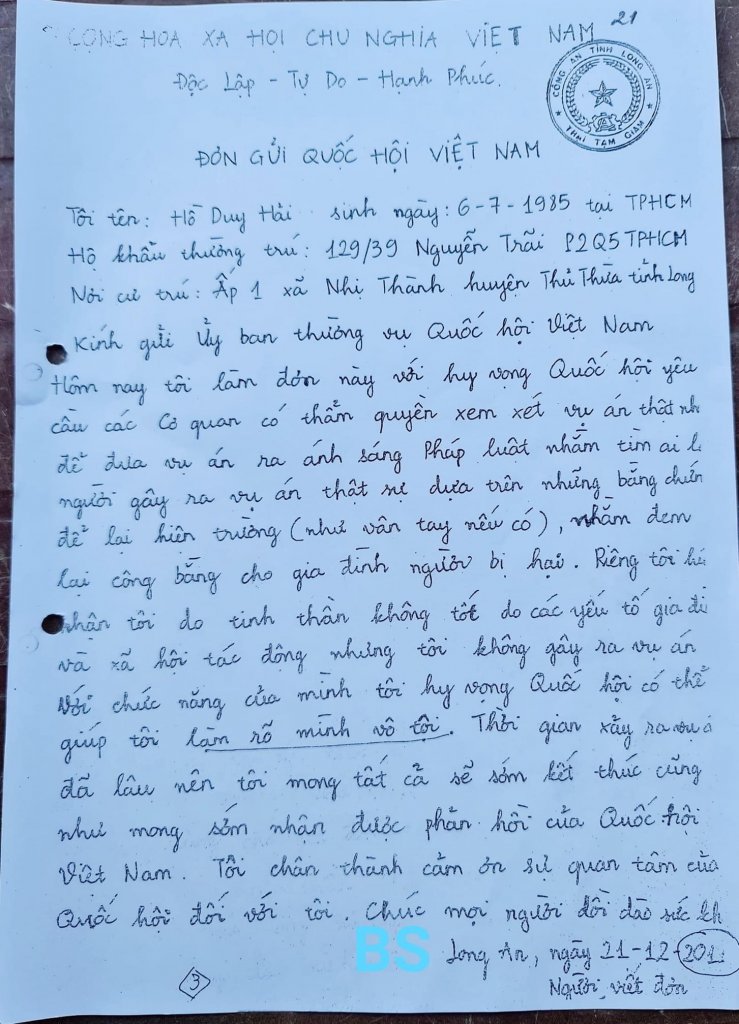 CỘNG HOA XA HỌI CHU NGHIA VIỆT NAM 21
Độc Lập - Tự Do - Hạnh Phúc.
CÔNG AN TỈNH LONG AN
TRẠI TẠM GIAM
ĐƠN GỬI QUỐC HỘI VIỆT NAM
Tôi tên: Hồ Duy Hải sinh ngày: 6-7-1985 tại TPHCM
Hộ khẩu thường trú: 129/39 Nguyễn Trãi P2Q5 TPHCM
Nơi cư trú: Ấp 1 xã Nhị Thành huyện Thủ Thừa tỉnh Long
Kính gửi Ủy ban thường vụ Quốc hội Việt Nam
Hôm nay tôi làm đơn này với hy vọng Quốc hội yêu
cầu các Cơ quan có thẩm quyền xem xét vụ án thật
để đưa vụ án ra ánh sáng Pháp luật nhằm tìm ai
người gây ra vụ án thật sự dựa trên những bằng
để lại hiện trường (như vân tay nếu có), nhằm đem
lại công bằng cho gia đình người bị hại. Riêng tôi
nhận tôi do tinh thần không tốt do các yếu tố gia
và xã hội tác động nhưng tôi không gây ra vụ án
Với chức năng của mình tôi hy vọng Quốc hội có thể
giúp tôi làm rõ mình vô tội. Thời gian xảy ra vụ
đã lâu nên tôi mong tất cả sẽ sớm kết thúc cũng
như mong sớm nhận được phản hồi của Quốc hội
Việt Nam. Tôi chân thành cảm ơn sự quan tâm của
Quốc hội đối với tôi. Chúc mọi người dồi dào sức
BS Long An, ngày 21-12-201
3 Người viết đơn